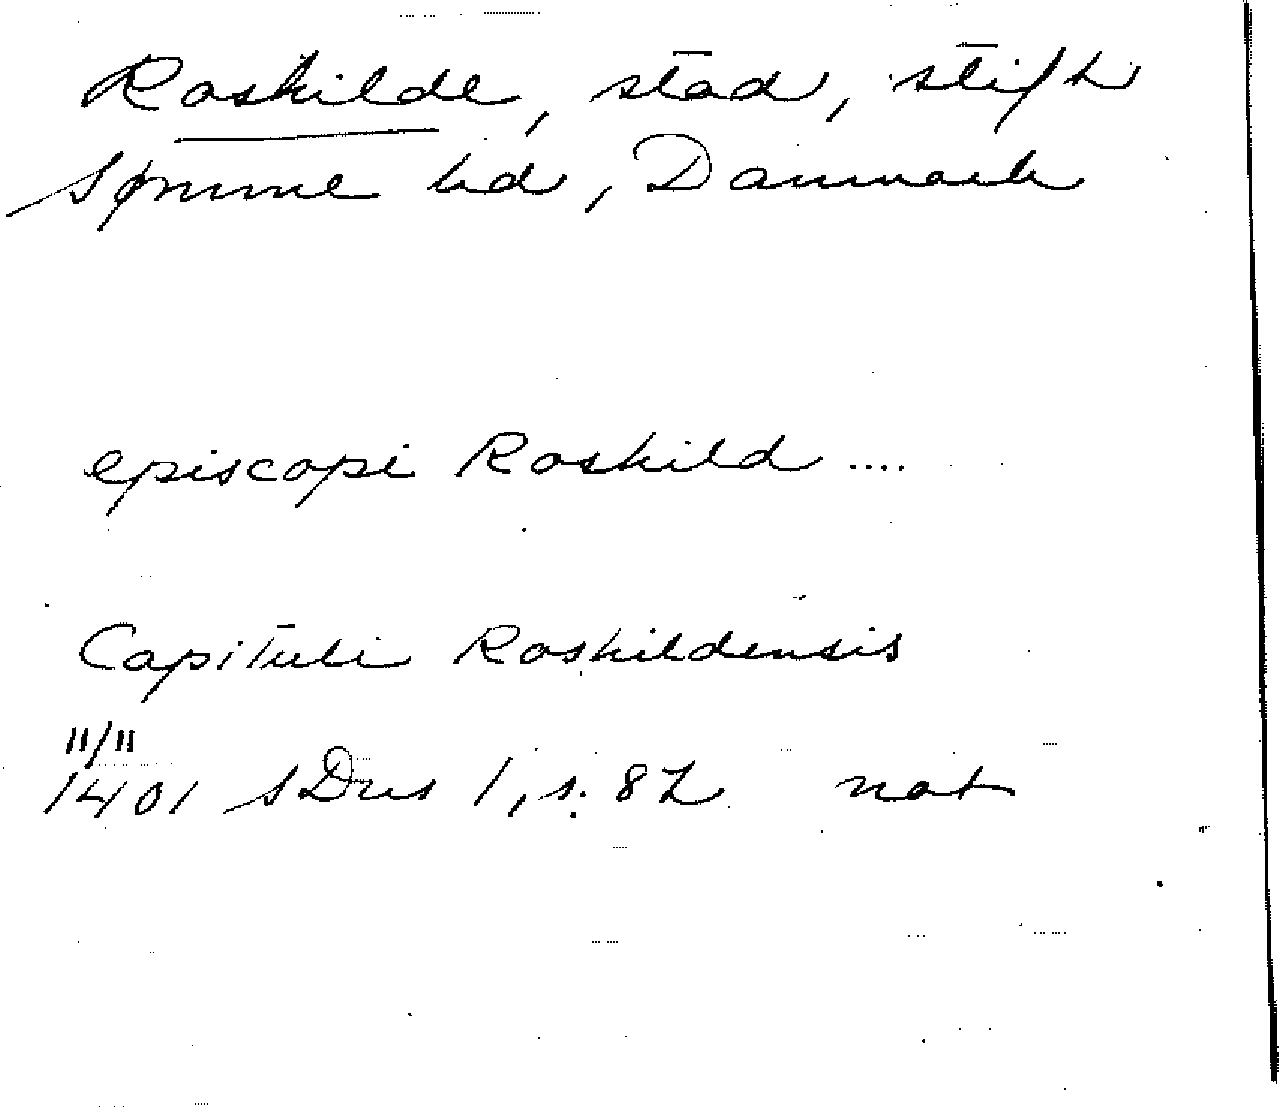 Roskilde, stad, stift
Sømme hd, Danmark
episcopi Roskild....
Capituli Roskildensis
11/11
1401 SDns 1, s. 82 not